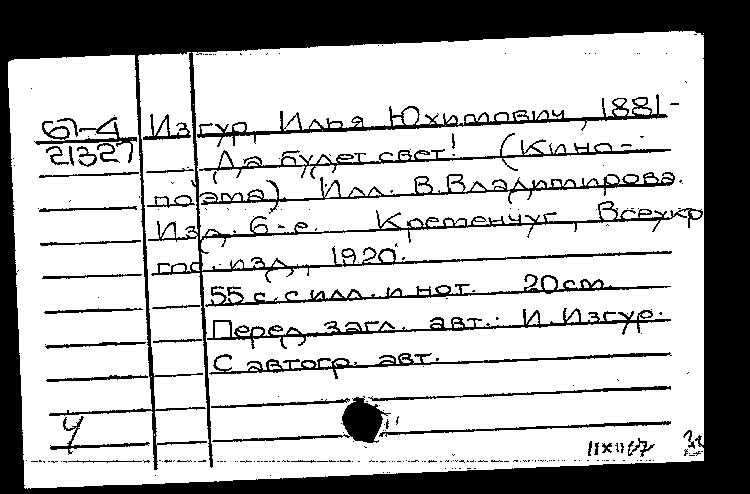 61-4 Изгур, Илья Юхимович, 1881-
21327 Да будет свет! (Кино-
поэма). Илл. В.Владимирова.
Изд. 6-е. Кременчуг, Всеукр
гос. изд., 1920.
55 с. с илл. и нот. 20 см.
Перед загл. авт.: И. Изгур.
С автогр. авт.